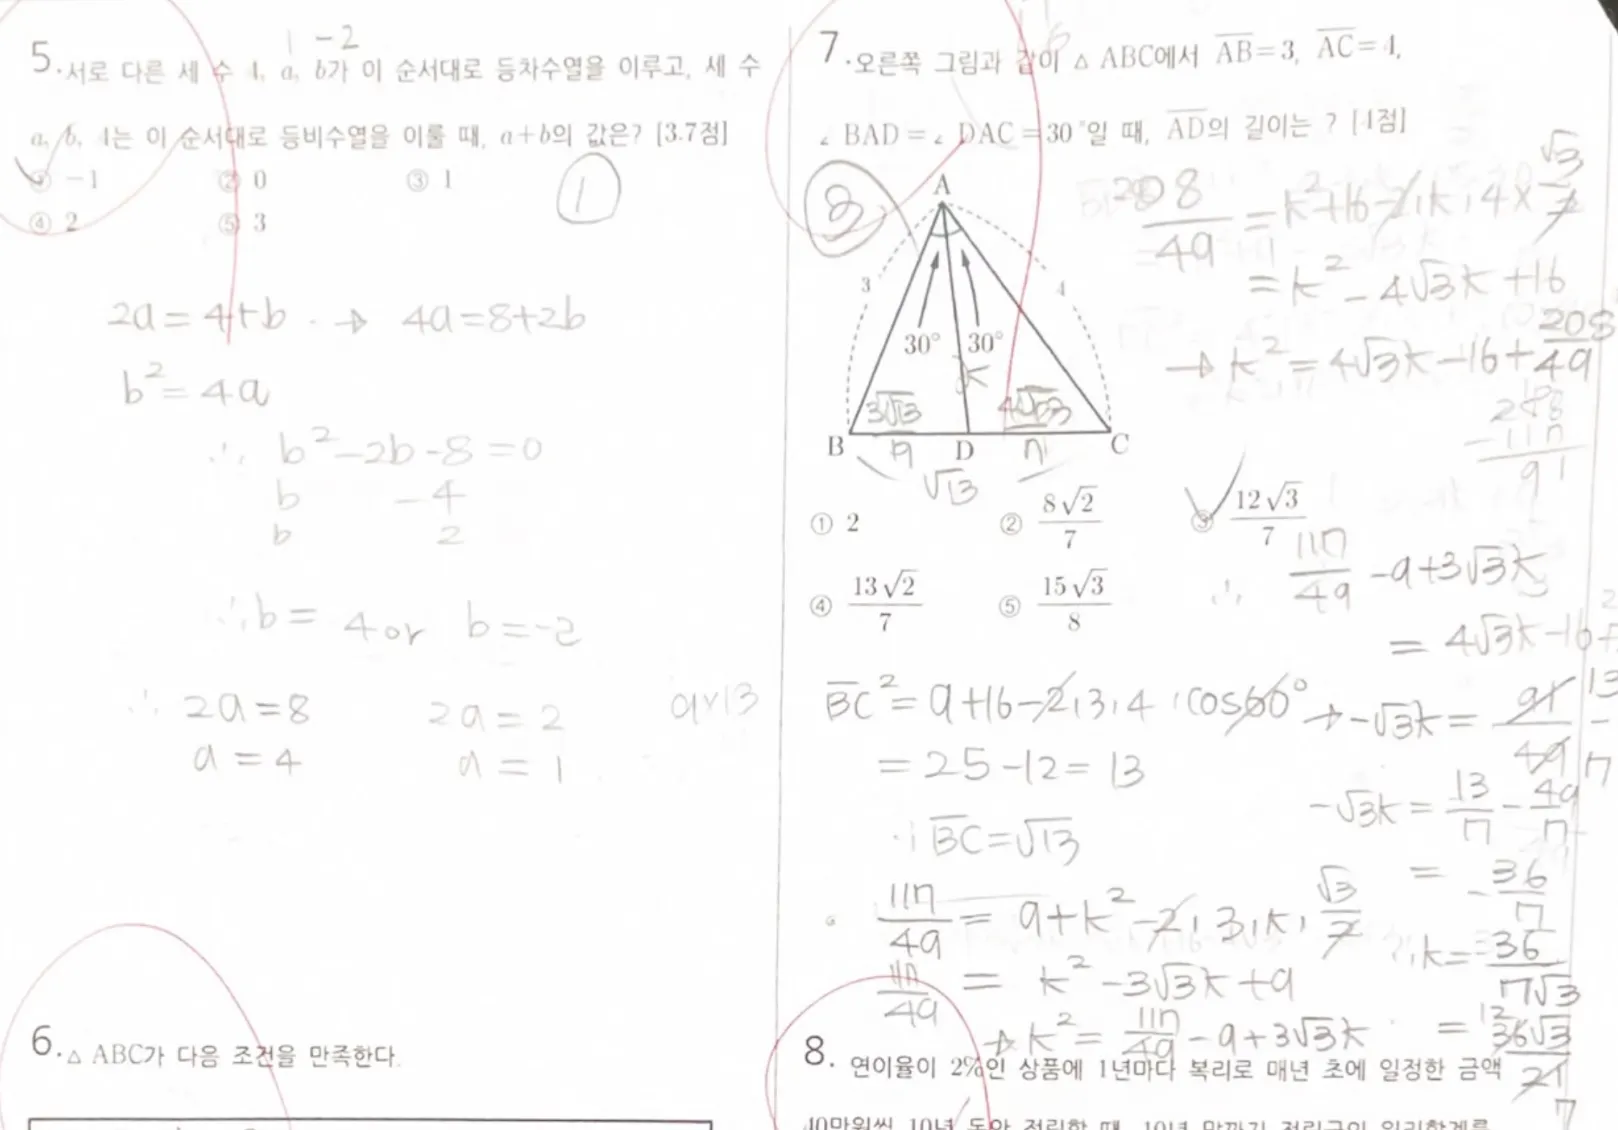 1 -2
5. 서로 다른 세 수 4, a, b가 이 순서대로 등차수열을 이루고, 세 수
a, b, 4는 이 순서대로 등비수열을 이룰 때, a+b의 값은? [3.7점]
① -1 ② 0 ③ 1
④ 2 ⑤ 3
1
2a=4+b → 4a=8+2b
b²=4a
∴ b²-2b-8=0
b -4
b 2
∴ b= 4 or b=-2
∴ 2a=8 2a=2
a=4 a=1
9×13
6. △ ABC가 다음 조건을 만족한다.
7. 오른쪽 그림과 같이 △ ABC에서 AB=3, AC=4,
∠ BAD = ∠ DAC = 30°일 때, AD의 길이는 ? [4점]
A
3
4
30° 30°
k
3√13/7 4√13/7
B D C
√13
① 2 ② 8√2/7 ③ 12√3/7
④ 13√2/7 ⑤ 15√3/8
208/49 = k²+16-2·k·4×√3/2
= k²-4√3k+16
→ k²=4√3k-16+208/49
208
-117
91
∴ 117/49 -9+3√3k
= 4√3k-16+
BC²=9+16-2·3·4·cos60°
=25-12=13
∴ BC=√13
117/49 = 9+k²-2·3·k·√3/2
117/49 = k²-3√3k+9
→ k²= 117/49 -9+3√3k
→ -√3k= 91/49 -
13
7
-√3k = 13/7 - 49/7
= -36/7
∴ k= 36/7√3
= 36√3/21
12
7
8. 연이율이 2%인 상품에 1년마다 복리로 매년 초에 일정한 금액
40만원씩 10년 동안 적립할 때, 10년 말까지 적립금의 원리합계를